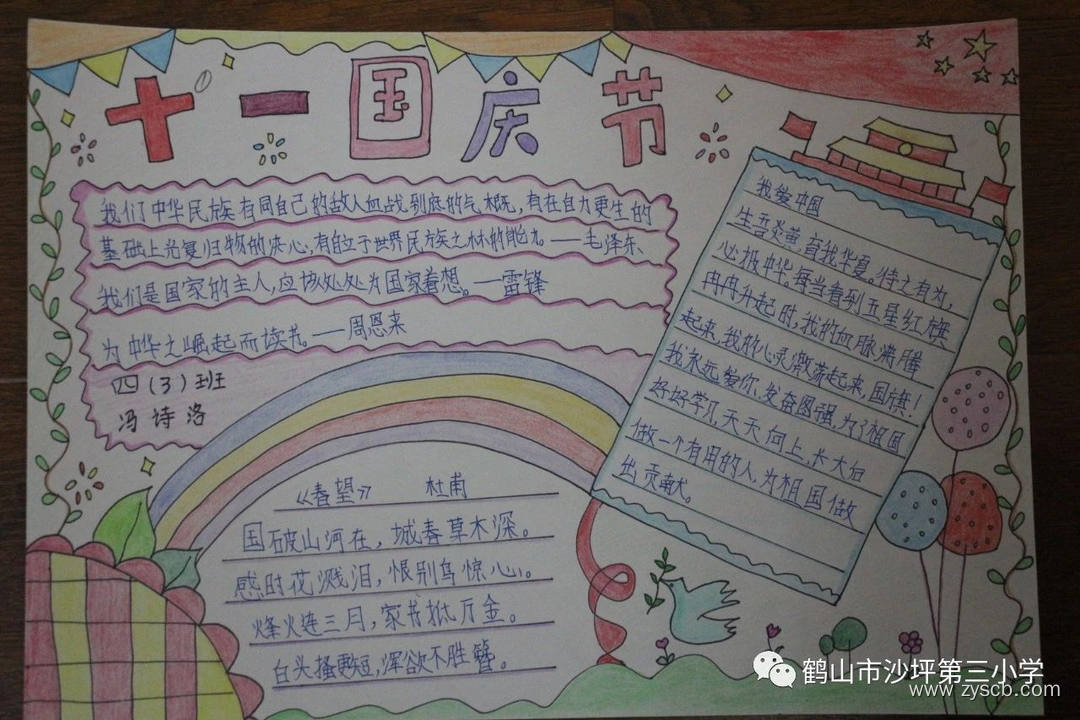 十一国庆节
我们中华民族有同自己的敌人血战到底的气概，有在自力更生的
基础上光复旧物的决心，有自立于世界民族之林的能力。——毛泽东
我们是国家的主人，应该处处为国家着想。——雷锋
为中华之崛起而读书。——周恩来
四（3）班
冯诗洛
《春望》 杜甫
国破山河在，城春草木深。
感时花溅泪，恨别鸟惊心。
烽火连三月，家书抵万金。
白头搔更短，浑欲不胜簪。
我爱中国
生于炎黄，育我华夏。待之有为，
必报中华，每当看到五星红旗
冉冉升起时，我的血脉沸腾
起来，我的心灵激荡起来，国旗！
我永远爱你，发奋图强，为了祖国
好好学习，天天向上，长大后
做一个有用的人，为祖国做
出贡献。
鹤山市沙坪第三小学
www.zyscb.com